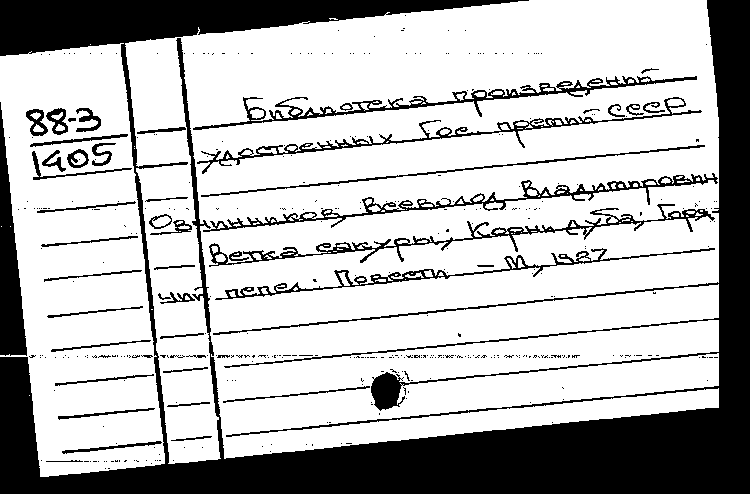 Библиотека произведений
88-3
удостоенных Гос. премий СССР
1405
Овчинников, Всеволод Владимирович
Ветка сакуры; Корни дуба; Горя-
чий пепел: Повести – М., 1987